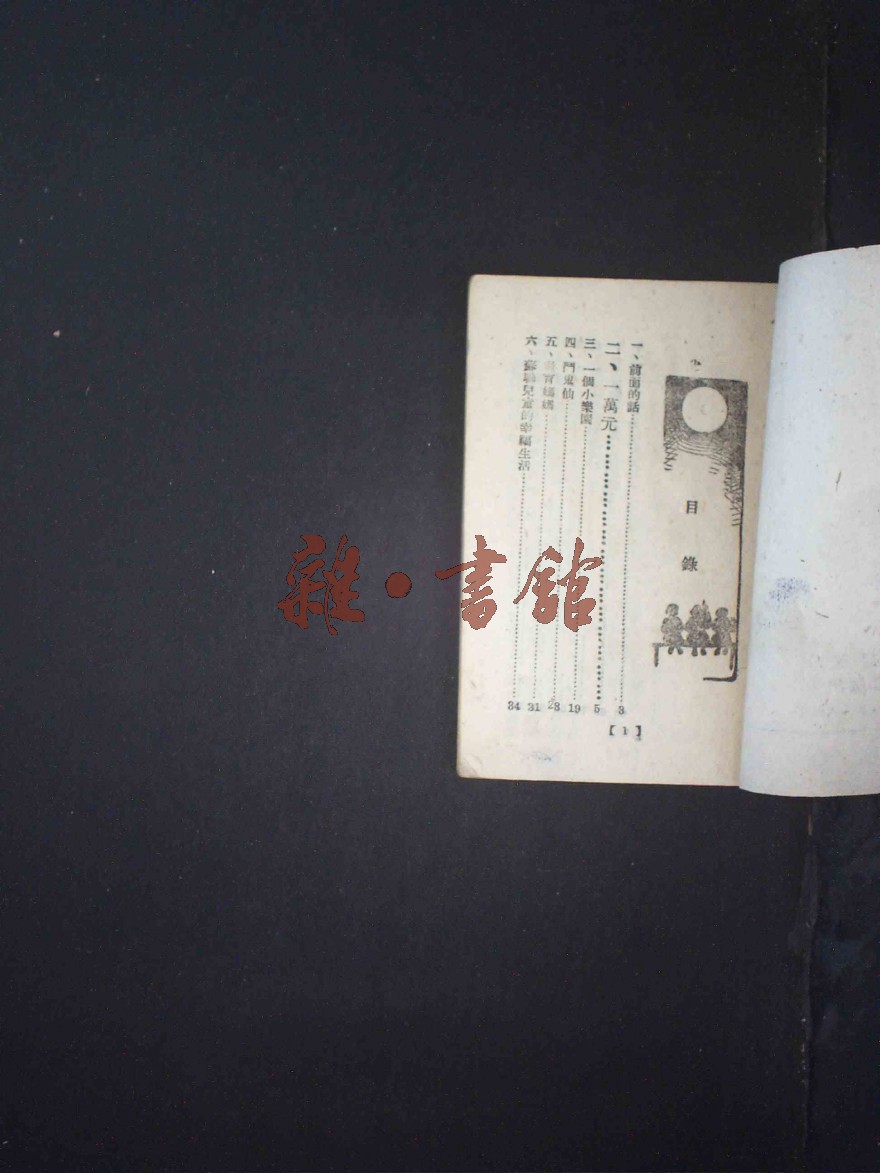 目錄
一、前面的話 3
二、一萬元 5
三、一個小樂園 19
四、鬥鬼仙 23
五、百媽媽 31
六、蘇聯兒童的幸福生活 34
【1】
雜·書館